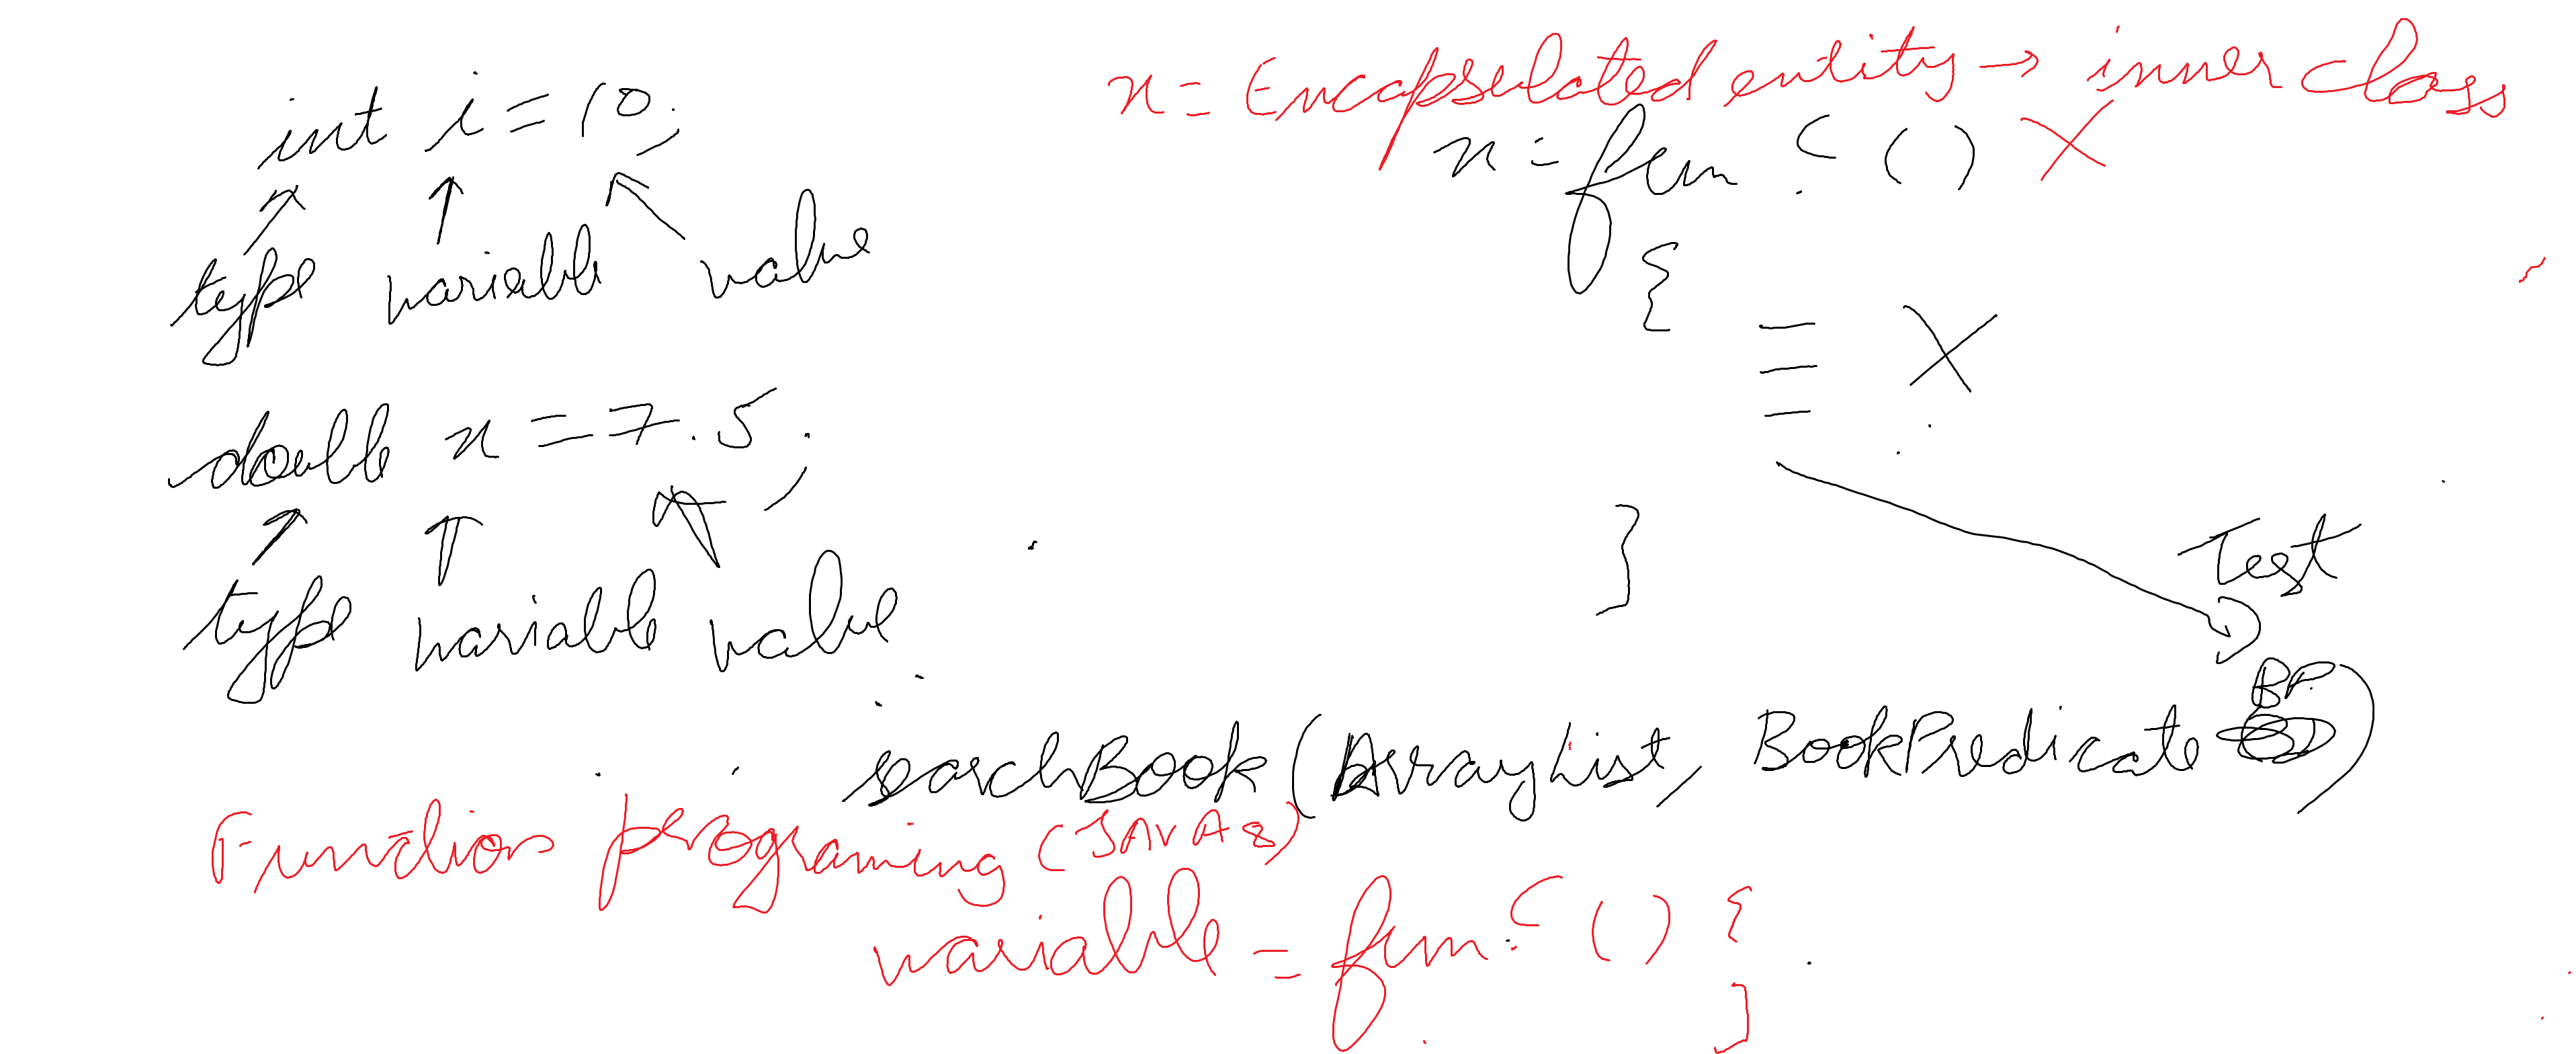 int i = 10;
type variable value
double x = 7.5;
type variable value
x = Encapsulated entity → inner class
x = func () X
{
X
}
Test
BP
searchBook (ArrayList, BookPredicate )
Function programing (JAVA 8)
variable = func () {
}